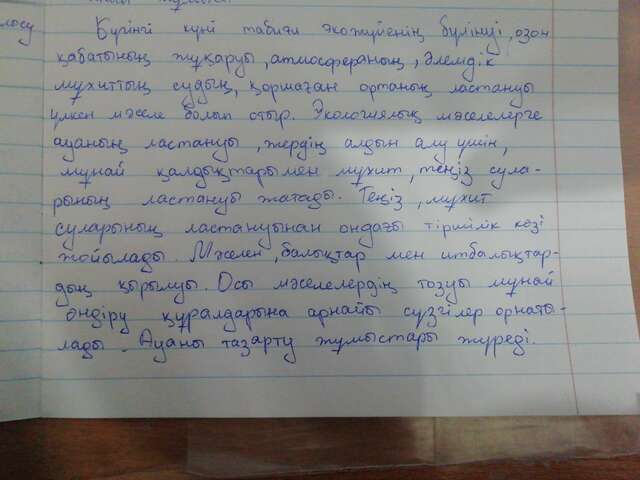 лосу
Бүгінгі күні табиғи экожүйенің бүлінуі, озон
қабатының жұқаруы, атмосфераның, әлемдік
мұхиттың судың, қоршаған ортаның ластануы
үлкен мәселе болып отыр. Экологиялық мәселелерге
ауаның ластануы, жердің алдын алу үшін,
мұнай қалдықтары мен мұхит, теңіз сула-
рының ластануы жатады. Теңіз, мұхит
суларының ластануынан ондағы тіршілік көзі
жойылады. Мәселен, балықтар мен итбалықтар-
дың қырылуы. Осы мәселелердің тозуы мұнай
өндіру құралдарына арнайы сүзгілер орнаты-
лады. Ауаны тазарту жұмыстары жүреді.